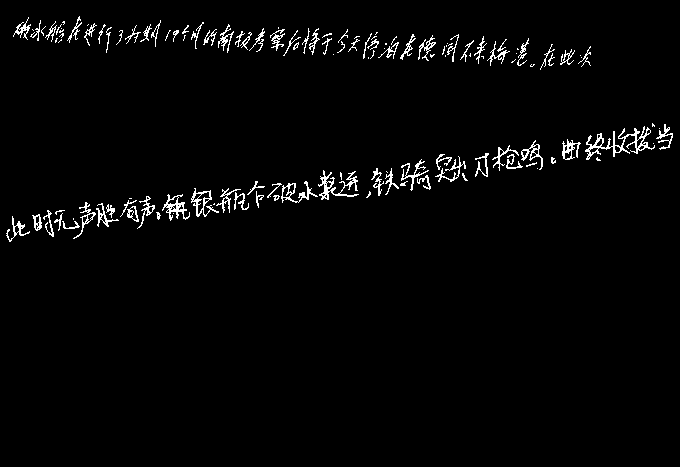 破冰船在进行了为期19个月的南极考察后将于今天停泊在德国不来梅港。在此次
此时无声胜有声。银瓶乍破水浆迸,铁骑突出刀枪鸣。曲终收拨当